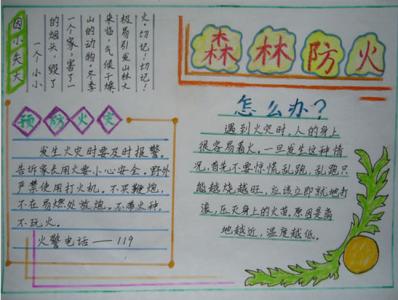 因小失大
一个小小
的烟头，毁了
一个家，害了一
山的动物。冬季
来临，气候干燥
极易引发山林大
火。切记！切记！
森林防火
预防火灾
发生火灾时要及时报警。
告诉家长用火要小心安全，野外
严禁使用打火机。不买鞭炮，
不在易燃处放炮。不带火种，
不玩火。
火警电话——119
怎么办？
遇到火灾时，人的身上
很容易着火，一旦发生这种情
况，首先不要惊慌乱跑，乱跑只
能越烧越旺，应该立即就地打
滚，压灭身上的火苗。原因是离
地越近，温度越低。